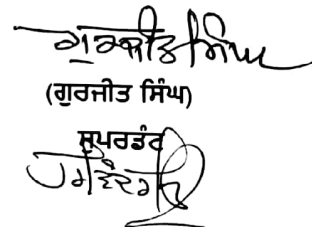 ਗੁਰਜੀਤ ਸਿੰਘ
(ਗੁਰਜੀਤ ਸਿੰਘ)
ਸੁਪਰਡੰਟ